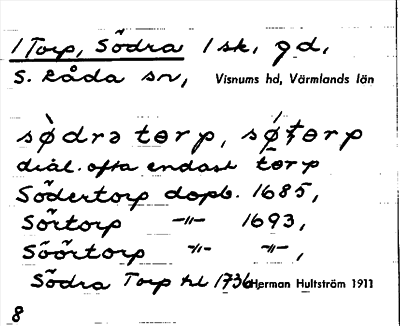 1 Torp, Södra 1 sk. gd.
S. Råda sn, Visnums hd, Värmlands län
sø̀drə tɵrp, sǿʈɵrp
dial. ofta endast tɵrp
Södertorp dopb. 1685,
Sörtorp -〃- 1693,
Söörtorp -〃- -〃-,
Södra Torp kl 1736 Herman Hultström 1911
8